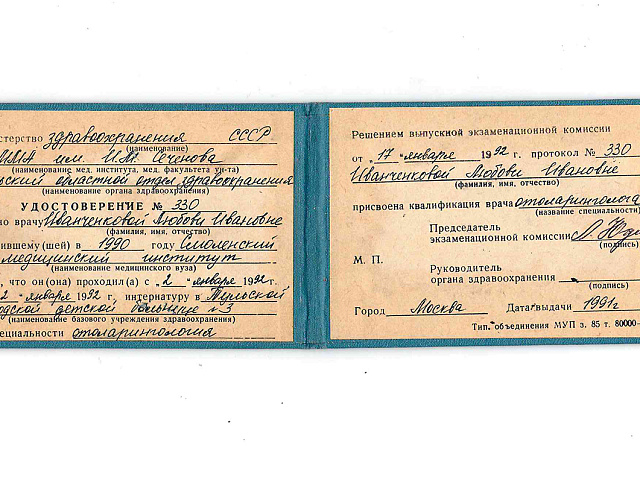 стерство здравоохранения СССР
(наименование)
ММА им. И.М. Сеченова
(наименование мед. института, мед. факультета ун-та)
ский областной отдел здравоохранения
(наименование органа здравоохранения)
УДОСТОВЕРЕНИЕ № 330
но врачу Иванченковой Любови Ивановне
(фамилия, имя, отчество)
ившему(шей) в 1990 году Смоленский
медицинский институт
(наименование медицинского вуза)
, что он(она) проходил(а) с „2 " января 1992г.
2 " января 1992 г. интернатуру в
одской детской больнице №3
(наименование базового учреждения здравоохранения)
специальности отоларингология
Решением выпускной экзаменационной комиссии
от „17 " января 1992 г. протокол № 330
Иванченковой Любови Ивановне
(фамилия, имя, отчество)
присвоена квалификация врача отоларинголога
(название специальности
Председатель
экзаменационной комиссии
(подпись)
М. П.
Руководитель
органа здравоохранения
(подпись)
Город Москва Дата выдачи 1991г
Тип. объединения МУП з. 85 т. 80000—